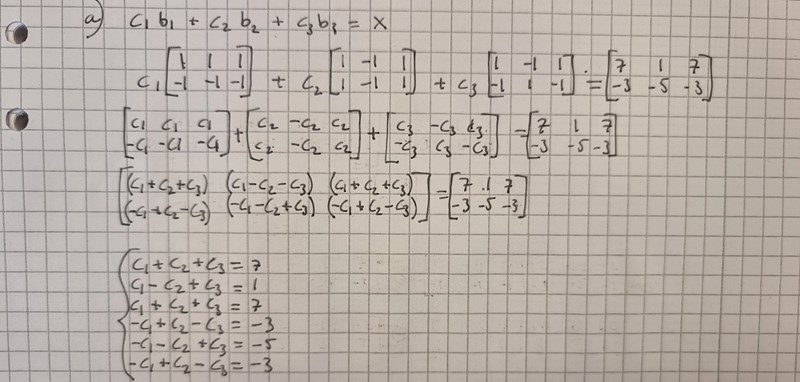 a) c₁b₁ + c₂b₂ + c₃b₃ = X
c₁ [1 1 1; -1 -1 -1] + c₂ [1 -1 1; 1 -1 1] + c₃ [1 -1 1; -1 1 -1] = [7 1 7; -3 -5 -3]
[c₁ c₁ c₁; -c₁ -c₁ -c₁] + [c₂ -c₂ c₂; c₂ -c₂ c₂] + [c₃ -c₃ c₃; -c₃ c₃ -c₃] = [7 1 7; -3 -5 -3]
[(c₁+c₂+c₃) (c₁-c₂-c₃) (c₁+c₂+c₃); (-c₁+c₂-c₃) (-c₁-c₂+c₃) (-c₁+c₂-c₃)] = [7 1 7; -3 -5 -3]
c₁ + c₂ + c₃ = 7
c₁ - c₂ + c₃ = 1
c₁ + c₂ + c₃ = 7
-c₁ + c₂ - c₃ = -3
-c₁ - c₂ + c₃ = -5
-c₁ + c₂ - c₃ = -3